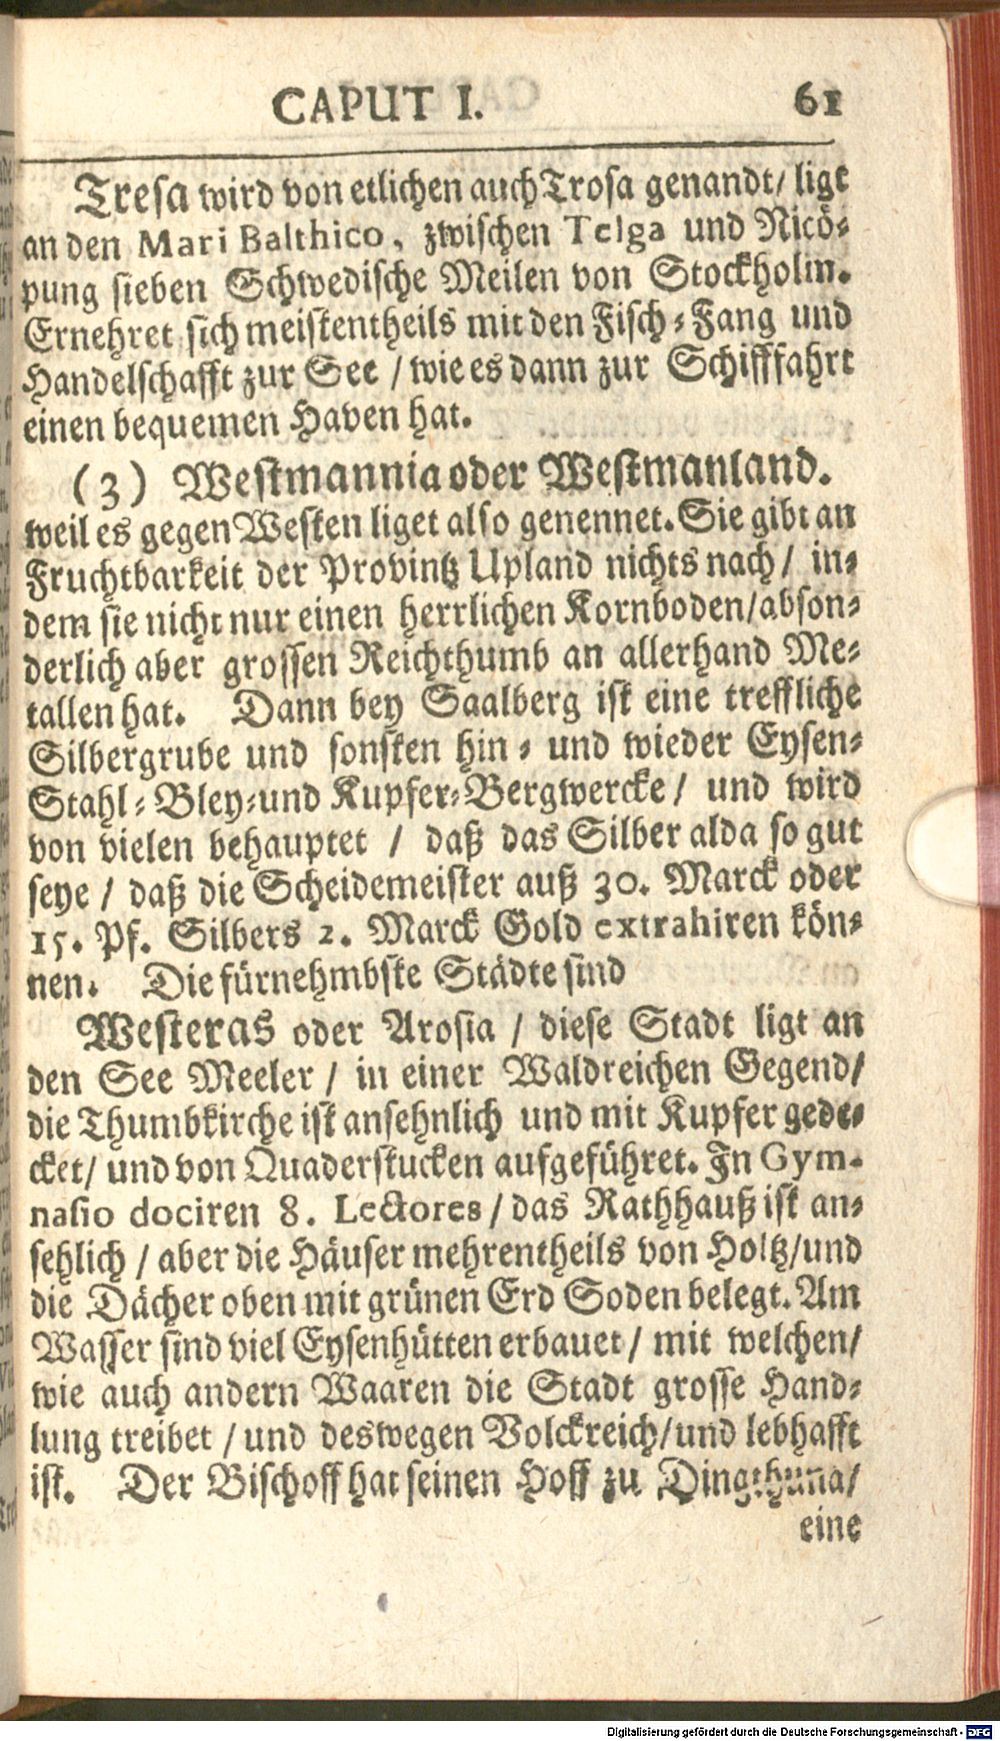 CAPUT I. 61
Tresa wird von etlichen auch Trosa genandt/ ligt
an den Mari Balthico, zwischen Telga und Nicö-
pung sieben Schwedische Meilen von Stockholm.
Ernehret sich meistentheils mit den Fisch-Fang und
Handelschafft zur See / wie es dann zur Schifffahrt
einen bequemen Haven hat.
(3) Westmannia oder Westmanland.
weil es gegen Westen liget also genennet. Sie gibt an
Fruchtbarkeit der Provintz Upland nichts nach / in-
dem sie nicht nur einen herrlichen Kornboden/abson-
derlich aber grossen Reichthumb an allerhand Me-
tallen hat. Dann bey Saalberg ist eine treffliche
Silbergrube und sonsten hin - und wieder Eysen-
Stahl-Bley-und Kupfer-Bergwercke / und wird
von vielen behauptet / daß das Silber alda so gut
seye / daß die Scheidemeister auß 30. Marck oder
15. Pf. Silbers 2. Marck Gold extrahiren kön-
nen. Die fürnehmbste Städte sind
Westeras oder Arosia / diese Stadt ligt an
den See Meeler / in einer Waldreichen Gegend/
die Thumbkirche ist ansehnlich und mit Kupfer gede-
cket/ und von Quaderstucken aufgeführet. In Gym-
nasio dociren 8. Lectores / das Rathhauß ist an-
sehlich / aber die Häuser mehrentheils von Holtz/und
die Dächer oben mit grünen Erd Soden belegt. Am
Wasser sind viel Eysenhütten erbauet / mit welchen/
wie auch andern Waaren die Stadt grosse Hand-
lung treibet / und deswegen Volckreich/und lebhafft
ist. Der Bischoff hat seinen Hoff zu Dingthuna/
eine
Digitalisierung gefördert durch die Deutsche Forschungsgemeinschaft - DFG